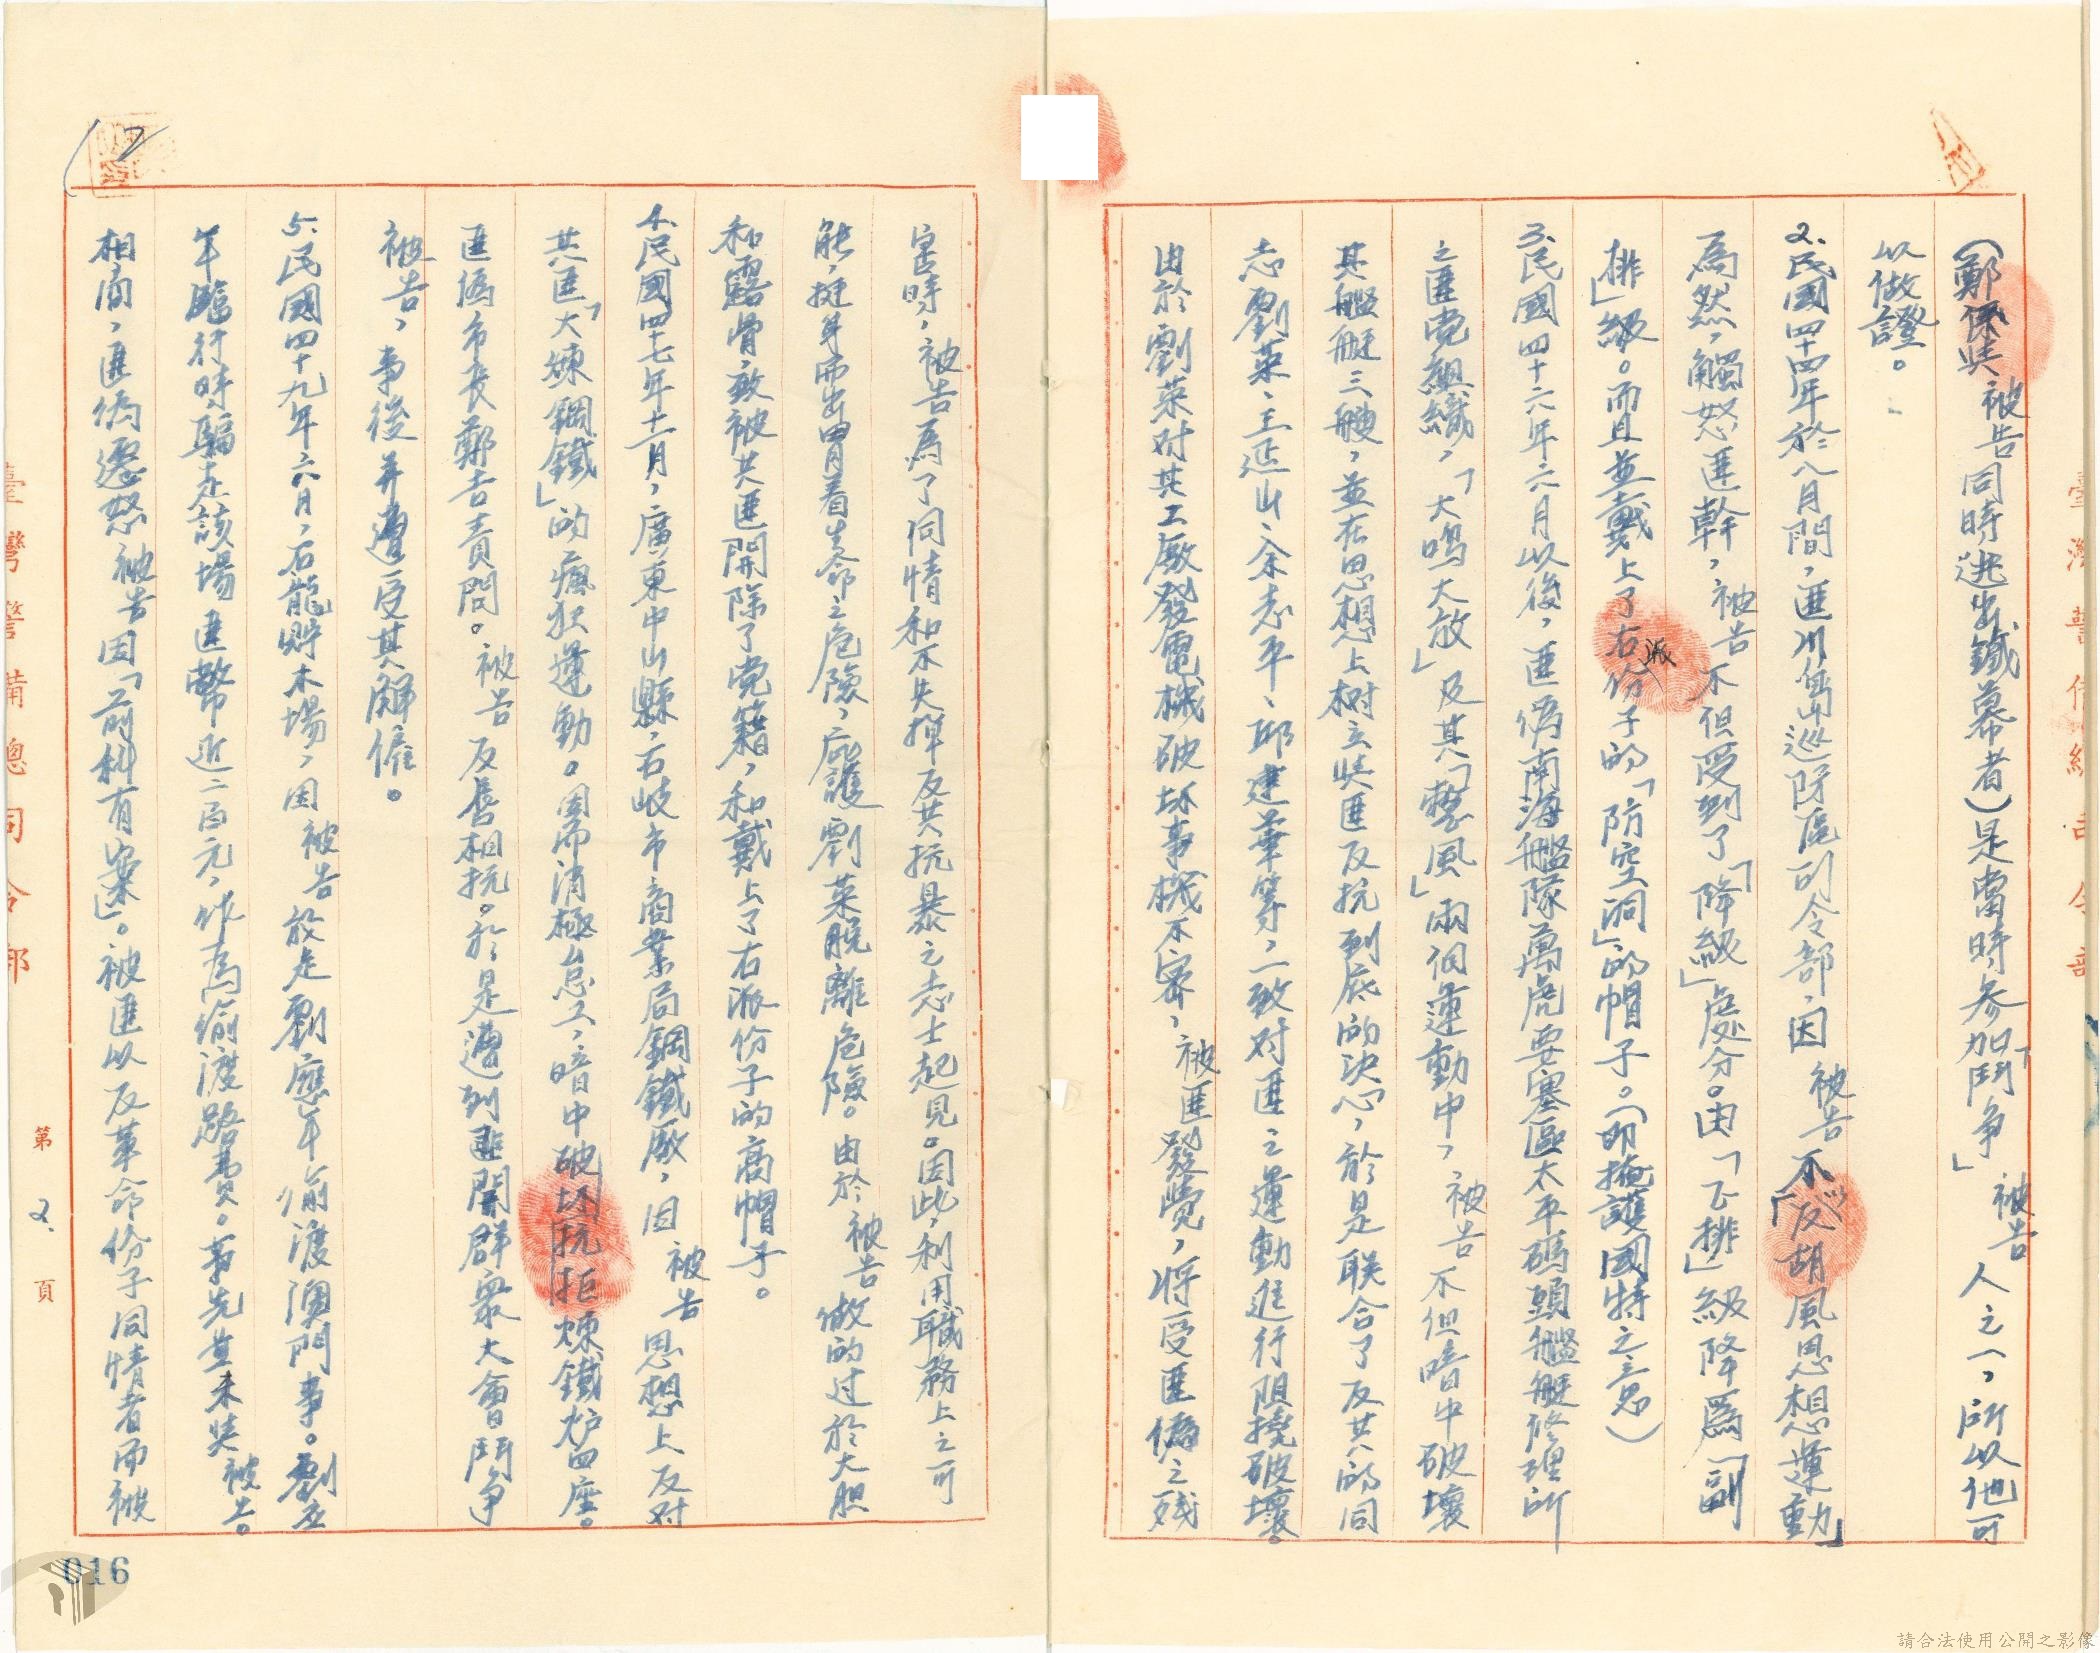 (鄭係與被告同時逃出鐵幕者)是當時參加「鬥爭」被告人之一,所以他可
以做證。
2.民國四十四年於八月間,匪川島巡防區司令部,因被告不「反胡風思想運動」
為然,觸怒匪幹,被告不但受到了「降級」處分。由「正排」級降為「副
排」級。而且並戴上了右派份子的「防空洞」的帽子。(即掩護國特之意思)
3.民國四十六年六月以後,匪偽南海艦隊萬虎要塞區太平碼頭艦艇修理所
之匪党組織,「大鳴大放」及其「整風」兩個運動中,被告不但暗中破壞
其艦艇三艘,並在思想上樹立與匪反抗到底的决心,於是联合了反共的同
志劉萊、王延山、余志平、邱建華等,一致对匪之運動進行阻撓破壞。
由於劉萊对其工廠發電機破坏事機不密,被匪發覺,將受匪偽之残
害時,被告為了同情和不失掉反共抗暴之志士起見。因此,利用職務上之可
能,挺身而出冒着生命之危險,庇護劉萊脫離危險。由於被告做的过於大胆
和露骨,致被共匪開除了党籍,和戴上了右派份子的高帽子。
4.民國四十七年十一月,廣東中山縣,石岐市商業局鋼鐵廠,因被告思想上反对
共匪「大煉鋼鐵」的瘋狂運動。因而消極怠工,暗中破坏抗拒煉鐵炉四座。
匪偽市長鄭吉責問。被告反唇相抗。於是遭到匪開群衆大會鬥争
被告,事後并遭受其解僱。
5.民國四十九年六月,石龍貯木場,因被告放走劉應年偷渡澳門事。劉应
年臨行時騙走該場匪幣近二百元,作為偷渡路費。事先並未與被告
相商,匪偽遷怒被告因「前科有案」。被匪以反革命份子同情者而被
臺灣警備總司令部
第2.頁
016
請合法使用公開之影像